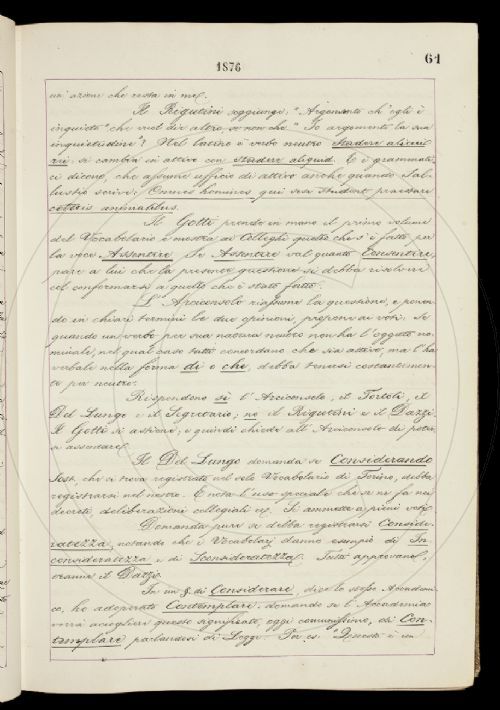 61
1876
un' azione che resta in me.
Il Rigutini soggiunge: "Argomento ch'egli è
inquieto" che vuol dire altro se non che "Io argomento la sua
inquietudine"? Nel latino il verbo neutro studere alicui
rei, si cambia in attivo con studere aliquid. E i grammati-
ci dicono, che assume ufficio di attivo anche quando Sal-
lustio scrive: Omnes homines qui sese student praestare
ceteris animalibus.
Il Gotti prende in mano il primo volume
del Vocabolario e mostra ai Colleghi quello che s'è fatto per
la voce Assentire. Se Assentire val quanto Consentire,
pare a lui che la presente questione si debba risolvere
col conformarsi a quello che è stato fatto.
L'Arciconsolo riassume la questione, e ponen-
do in chiari termini le due opinioni, propone ai voti: Se
quando un verbo per sua natura neutro non ha l'oggetto no-
minale, nel qual caso tutti concordano che sia attivo, ma l'ha
verbale nella forma di o che, debba tenersi costantemen-
te per neutro.
Rispondono sì l'Arciconsolo, il Tortoli, il
Del Lungo e il Segretario; no il Rigutini e il Dazzi.
Il Gotti si astiene; e quindi chiede all'Arciconsolo di poter-
si assentare.
Il Del Lungo domanda se Considerando
Sost. che si trova registrato nel solo Vocabolario di Torino, debba
registrarsi nel nostro. E nota l'uso speciale che se ne fa nei
decreti, deliberazioni collegiali ec. Si ammette a pieni voti.
Domanda pure se debba registrarsi Conside-
ratezza, notando che i Vocabolarj danno esempio di In-
consideratezza e di Sconsideratezza. Tutti approvano,
tranne il Dazzi.
In un §. di Considerare, dice lo stesso Accademi-
co, ho adoperato Contemplare: domando se l'Accademia
vorrà accogliere questo significato, oggi comunissimo, di Con-
templare parlandosi di Legge. Per es. "Questo è un